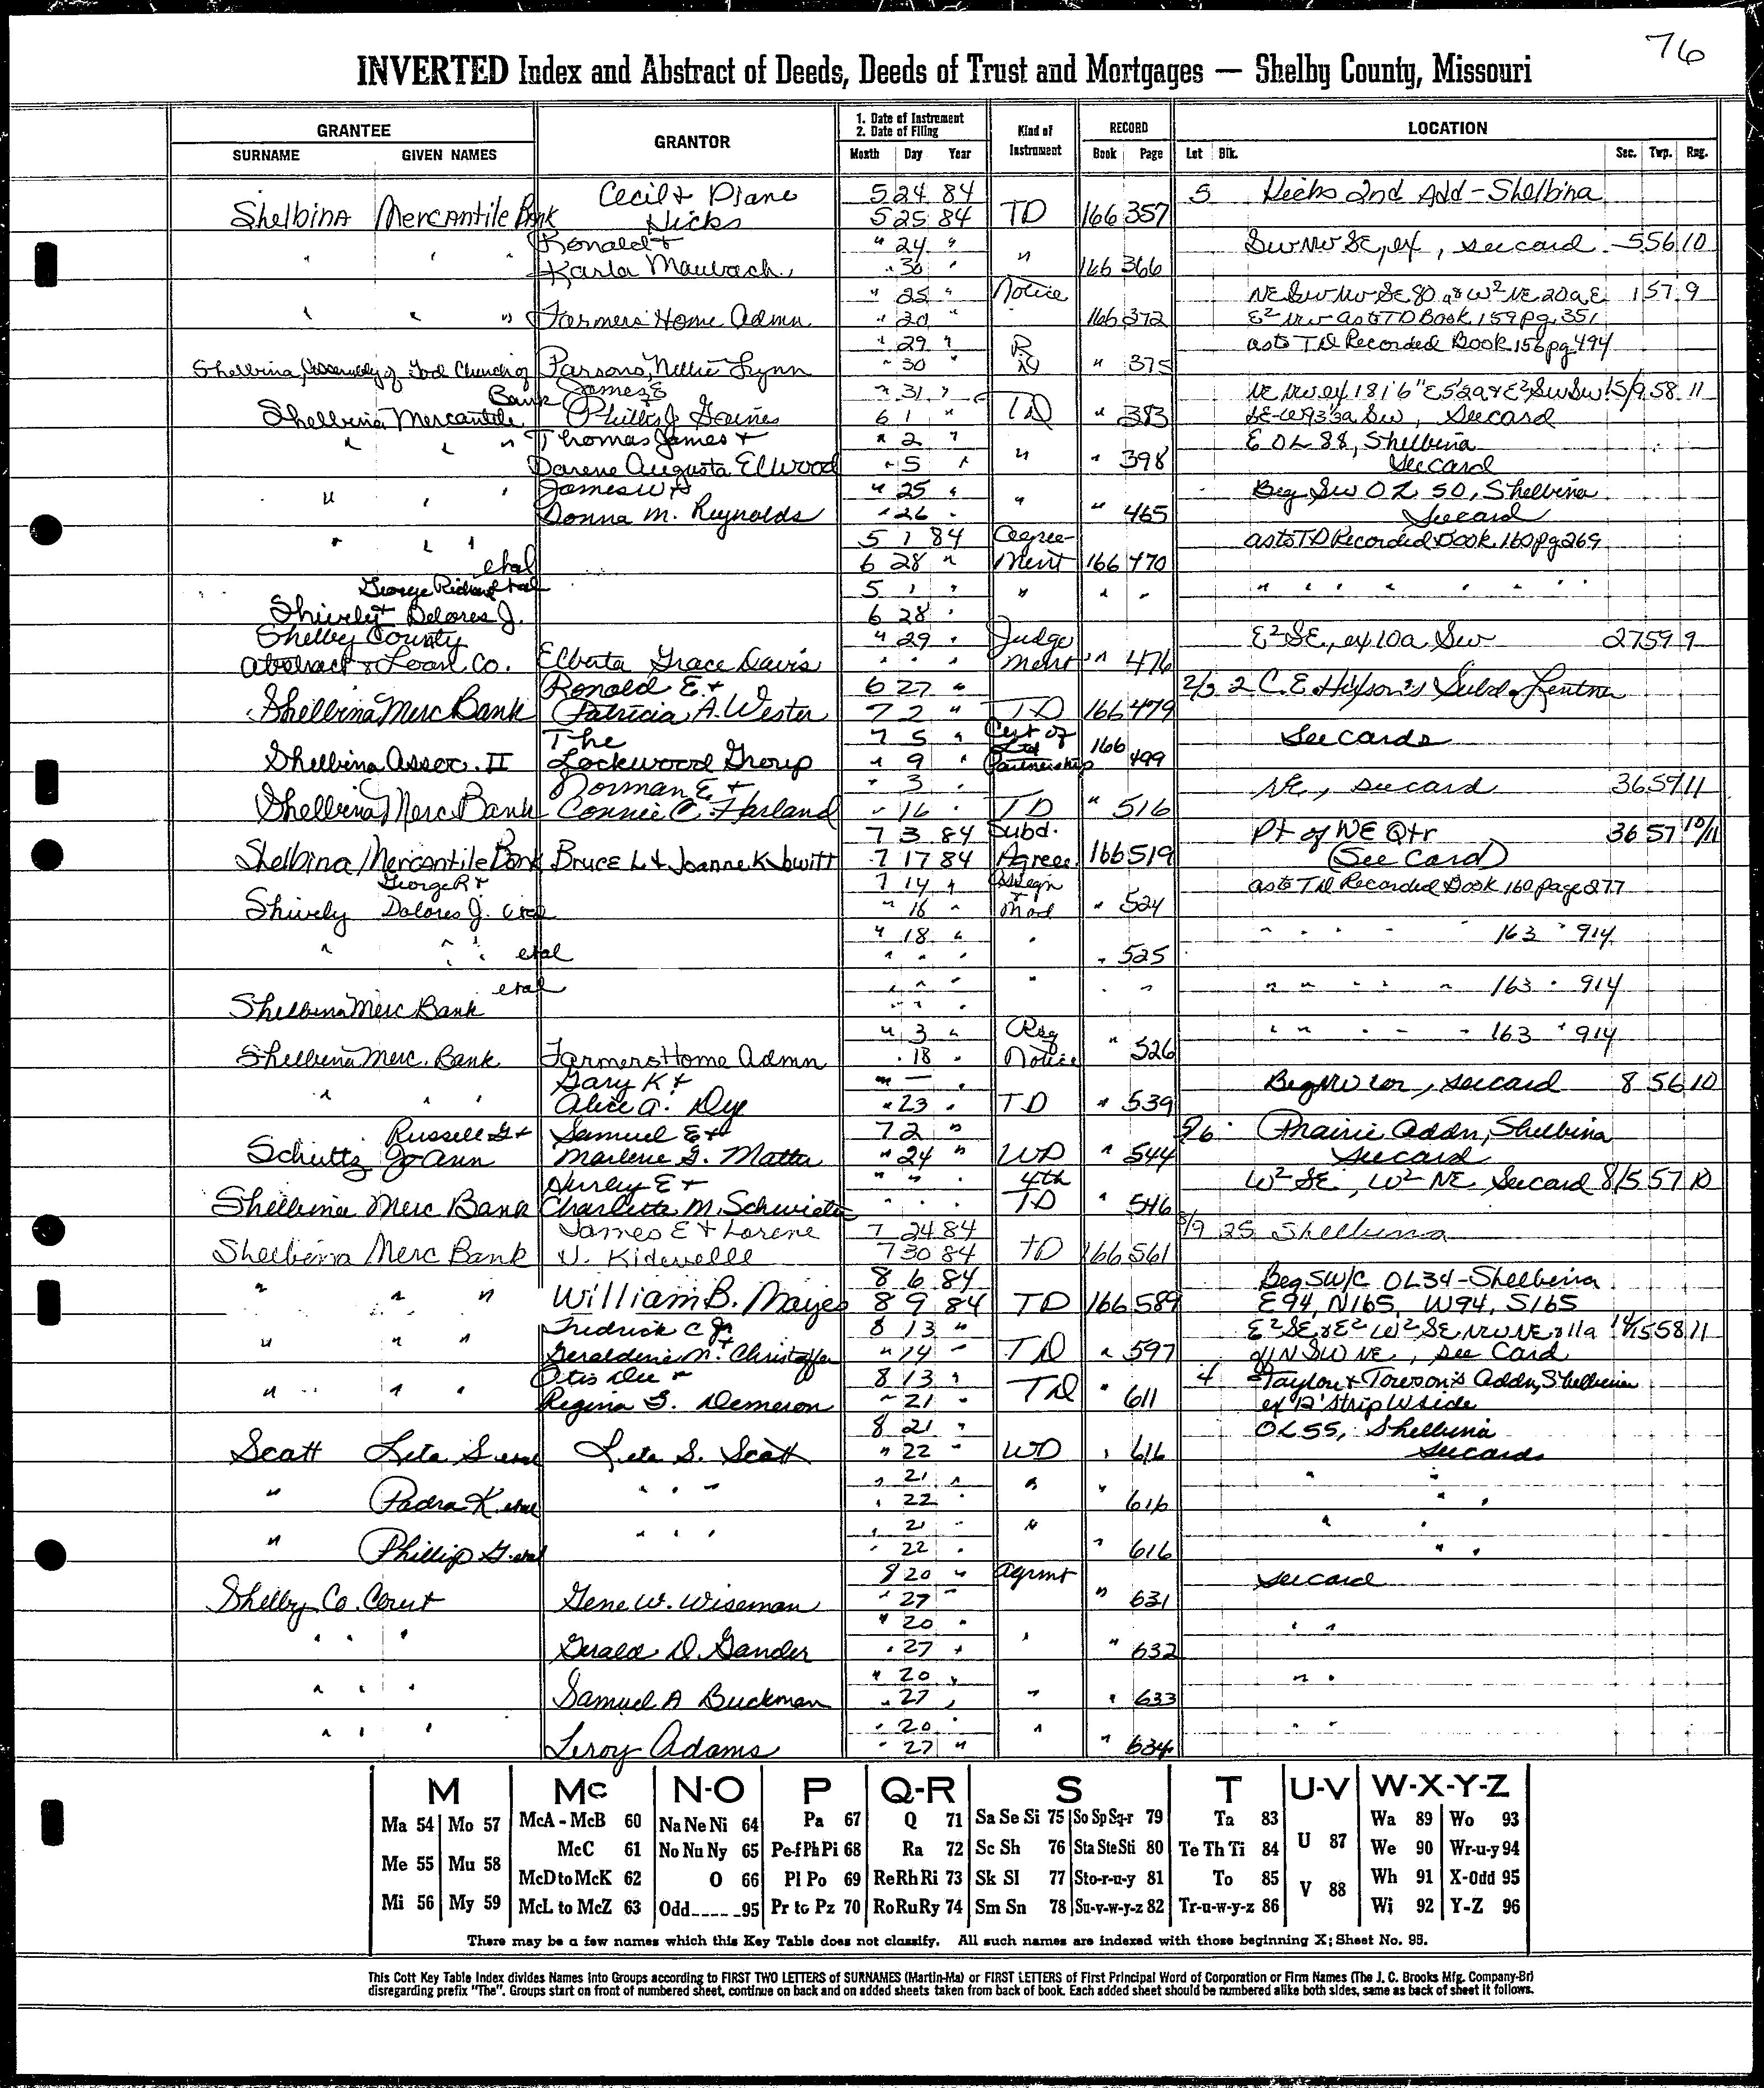 76
INVERTED Index and Abstract of Deeds, Deeds of Trust and Mortgages — Shelby County, Missouri
GRANTEE GRANTOR 1. Date of Instrument 2. Date of Filing Kind of Instrument RECORD LOCATION
SURNAME GIVEN NAMES Month Day Year Book Page Lot Blk. Sec. Twp. Rng.
Cecil & Diane 5 24 84 5 Hicks 2nd Add - Shelbina
Shelbina Mercantile Bank Hicks 5 25 84 TD 166 357
Ronald & " 24 " SwNwSE, ex, see card 5 56 10
" " " Karla Maubach " 30 " " 166 366
" 25 " Notice NE SwNwSE 80a & W² NE 20a E 1 57 9
" " " Farmers Home Admn " 30 " 166 372 E² NW as to TD Book 159 pg 351
" 29 " R as to TD Recorded Book 156 pg 494
Shelbina, Assembly of God Church of Parsons, Nellie Lynn " 30 D " 375
Bank James E " 31 " NE NW ex 181'6" E 52a & E² SwSw 15/9 58 11
Shelbina Mercantile Phillis J. Gaines 6 1 " TD " 383 SE-W 93 3a Sw, see card
" " " Thomas James & " 2 " E OL 88, Shelbina
Darene Augusta Ellwood " 5 " " " 398 see card
" " " James W & " 25 " Beg Sw OL 50, Shelbina
Donna M. Reynolds " 26 " " " 465 see card
" " " 5 1 84 Agree- as to TD Recorded Book 160 pg 269
etal 6 28 " ment 166 470
George Richard etal 5 1 " " " " " " " " " "
Shively & Delores J. 6 28 "
Shelby County " 29 " Judge E² SE, ex 10a Sw 27 59 9
Abstract & Loan Co. Elberta Grace Davis " " " ment " 476
Ronald E. & 6 27 " 2/3 2 C. E. Hixson's Subd. Lentner
Shelbina Merc Bank Patricia A. Wester 7 2 " TD 166 479
The 7 5 " Cert of Ltd see cards
Shelbina Assoc. II Lockwood Group " 9 " Partnership 166 499
Norman E & " 3 " NE, see card 36 59 11
Shelbina Merc Bank Connie C. Harland " 16 " TD " 516
7 3 84 Subd. Pt of NE Qtr 36 57 10/11
Shelbina Mercantile Bank Bruce L & Joanne K Jewitt 7 17 84 Agree. 166 519 (See Card)
George R & 7 14 " Assign as to TD Recorded Book 160 page 277
Shively Dolores J. etal " 16 " & Mod " 524
" 18 " " " " " " 163 " 914
" " " etal " " " " 525
etal " " " " " " " " " " " 163 " 914
Shelbina Merc Bank " " "
" 3 " Req " " " " " 163 " 914
Shelbina Merc. Bank Farmers Home Admn " 18 " Notice " 526
Gary K & " — " Beg NW cor, see card 8 56 10
" " " Alice A. Dye " 23 " TD " 539
Russell G & Samuel E & 7 2 " 5/6 Prairie Addn, Shelbina
Schultz JoAnn Marlene G. Matta " 24 " WD " 544 see card
Hurley E & " " " 4th W² SE, W² NE see card 8/5 57 10
Shelbina Merc Bank Charlotte M. Schwieter " " " TD " 546
James E & Lorene 7 24 84 8/9 25 Shelbina
Shelbina Merc Bank V. Kidwelll 7 30 84 TD 166 561
8 6 84 Beg SW/C OL34 - Shelbina
" " " William B. Mayes 8 9 84 TD 166 589 E94, N165, W94, S165
Fredrick C Jr 8 13 " E² SE & E² W² SE NW NE & 11a 14/15 58 11
" " " Geraldene M. Christoffer " 14 " TD " 597 of N SW NE, see Card
Otis Dee & 8 13 " 4 Taylor & Towson's Addn, Shelbina
" " " Regina G. Demeron " 21 " TD " 611 ex 12' strip W side
8 21 " OL 55, Shelbina
Scott Leta S etal Leta S. Scott " 22 " WD " 616 see cards
" 21 " " "
" Padra K. etal " " " " 22 " " " 616 " "
" 21 " " "
" Phillip G. etal " " " " 22 " " 616 " "
8 20 " Agrmt see card
Shelby Co. Court Gene W. Wiseman " 27 " " 631
" 20 " " "
" " " Gerald D. Gander " 27 " " " 632
" 20 " " "
" " " Samuel A Buckman " 27 " " " 633
" 20 " " "
" " " Leroy Adams " 27 " " " 634
M Mc N-O P Q-R S T U-V W-X-Y-Z
Ma 54 Mo 57 McA - McB 60 Na Ne Ni 64 Pa 67 Q 71 Sa Se Si 75 So Sp Sq-r 79 Ta 83 U 87 Wa 89 Wo 93
Me 55 Mu 58 McC 61 No Nu Ny 65 Pe-f Ph Pi 68 Ra 72 Sc Sh 76 Sta Ste Sti 80 Te Th Ti 84 We 90 Wr-u-y 94
McD to McK 62 O 66 Pl Po 69 Re Rh Ri 73 Sk Sl 77 Sto-r-u-y 81 To 85 V 88 Wh 91 X-Odd 95
Mi 56 My 59 McL to McZ 63 Odd_____95 Pr to Pz 70 Ro Ru Ry 74 Sm Sn 78 Su-v-w-y-z 82 Tr-u-w-y-z 86 Wi 92 Y-Z 96
There may be a few names which this Key Table does not classify. All such names are indexed with those beginning X; Sheet No. 95.
This Cott Key Table Index divides Names into Groups according to FIRST TWO LETTERS of SURNAMES (Martin-Ma) or FIRST LETTERS of First Principal Word of Corporation or Firm Names (The J. C. Brooks Mfg. Company-Br)
disregarding prefix "The". Groups start on front of numbered sheet, continue on back and on added sheets taken from back of book. Each added sheet should be numbered alike both sides, same as back of sheet it follows.